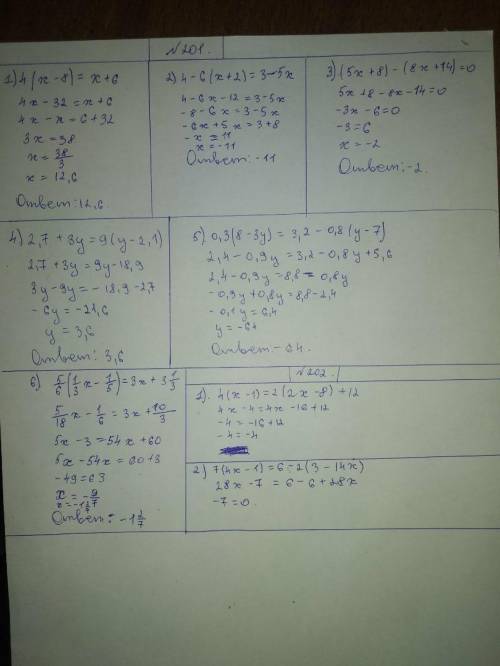 №201.
1) 4(x-8) = x+6
4x-32 = x+6
4x-x = 6+32
3x = 38
x = 38/3
x = 12,6
Ответ: 12,6.
2) 4-6(x+2) = 3-5x
4-6x-12 = 3-5x
-8-6x = 3-5x
-6x+5x = 3+8
-x = 11
x = -11
Ответ: -11
3) (5x+8)-(8x+14)=0
5x+8-8x-14=0
-3x-6=0
-3=6
x=-2
Ответ: -2.
4) 2,7+3y=9(y-2,1)
2,7+3y=9y-18,9
3y-9y=-18,9-2,7
-6y=-21,6
y=3,6
Ответ: 3,6
5) 0,3(8-3y) = 3,2-0,8(y-7)
2,4-0,9y=3,2-0,8y+5,6
2,4-0,9y=8,8-0,8y
-0,9y+0,8y=8,8-2,4
-0,1y=6,4
y=-64
Ответ -64.
6) 5/6(1/3x-1/5)=3x+3 1/3
5/18x-1/6=3x+10/3
5x-3=54x+60
5x-54x=60+3
-49=63
x=-9/7
x=-1 2/7
Ответ: -1 2/7
№202.
1). 4(x-1)=2(2x-8)+12
4x-4=4x-16+12
-4=-16+12
-4=-4
2) 7(4x-1)=6-2(3-14x)
28x-7=6-6+28x
-7=0.